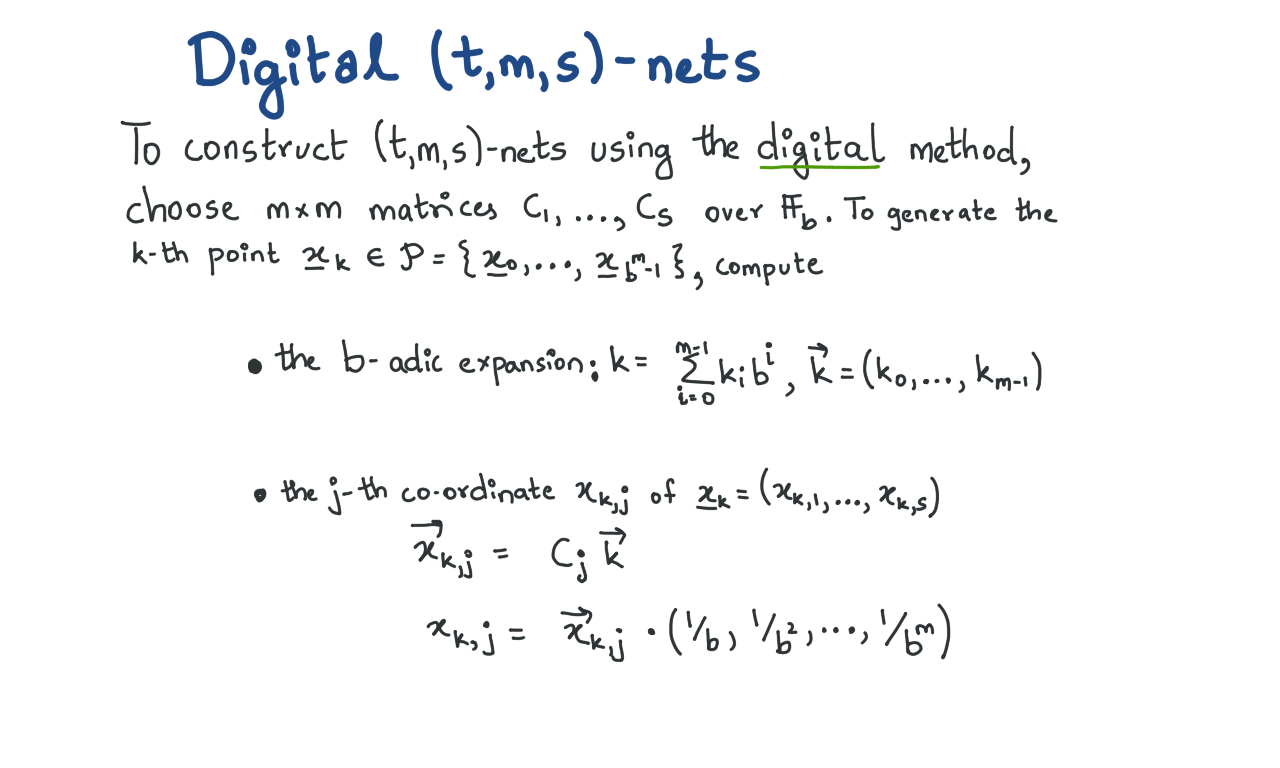 Digital (t,m,s)-nets
To construct (t,m,s)-nets using the digital method,
choose m×m matrices C₁, ..., Cₛ over 𝔽_b. To generate the
k-th point x̲ₖ ∈ P = {x̲₀, ..., x̲_{b^m-1}}, compute
• the b-adic expansion: k = ∑_{i=0}^{m-1} kᵢ bⁱ, k⃗ = (k₀, ..., k_{m-1})
• the j-th co-ordinate x_{k,j} of x̲ₖ = (x_{k,1}, ..., x_{k,s})
x⃗_{k,j} = C_j k⃗
x_{k,j} = x⃗_{k,j} · (1/b, 1/b², ..., 1/b^m)